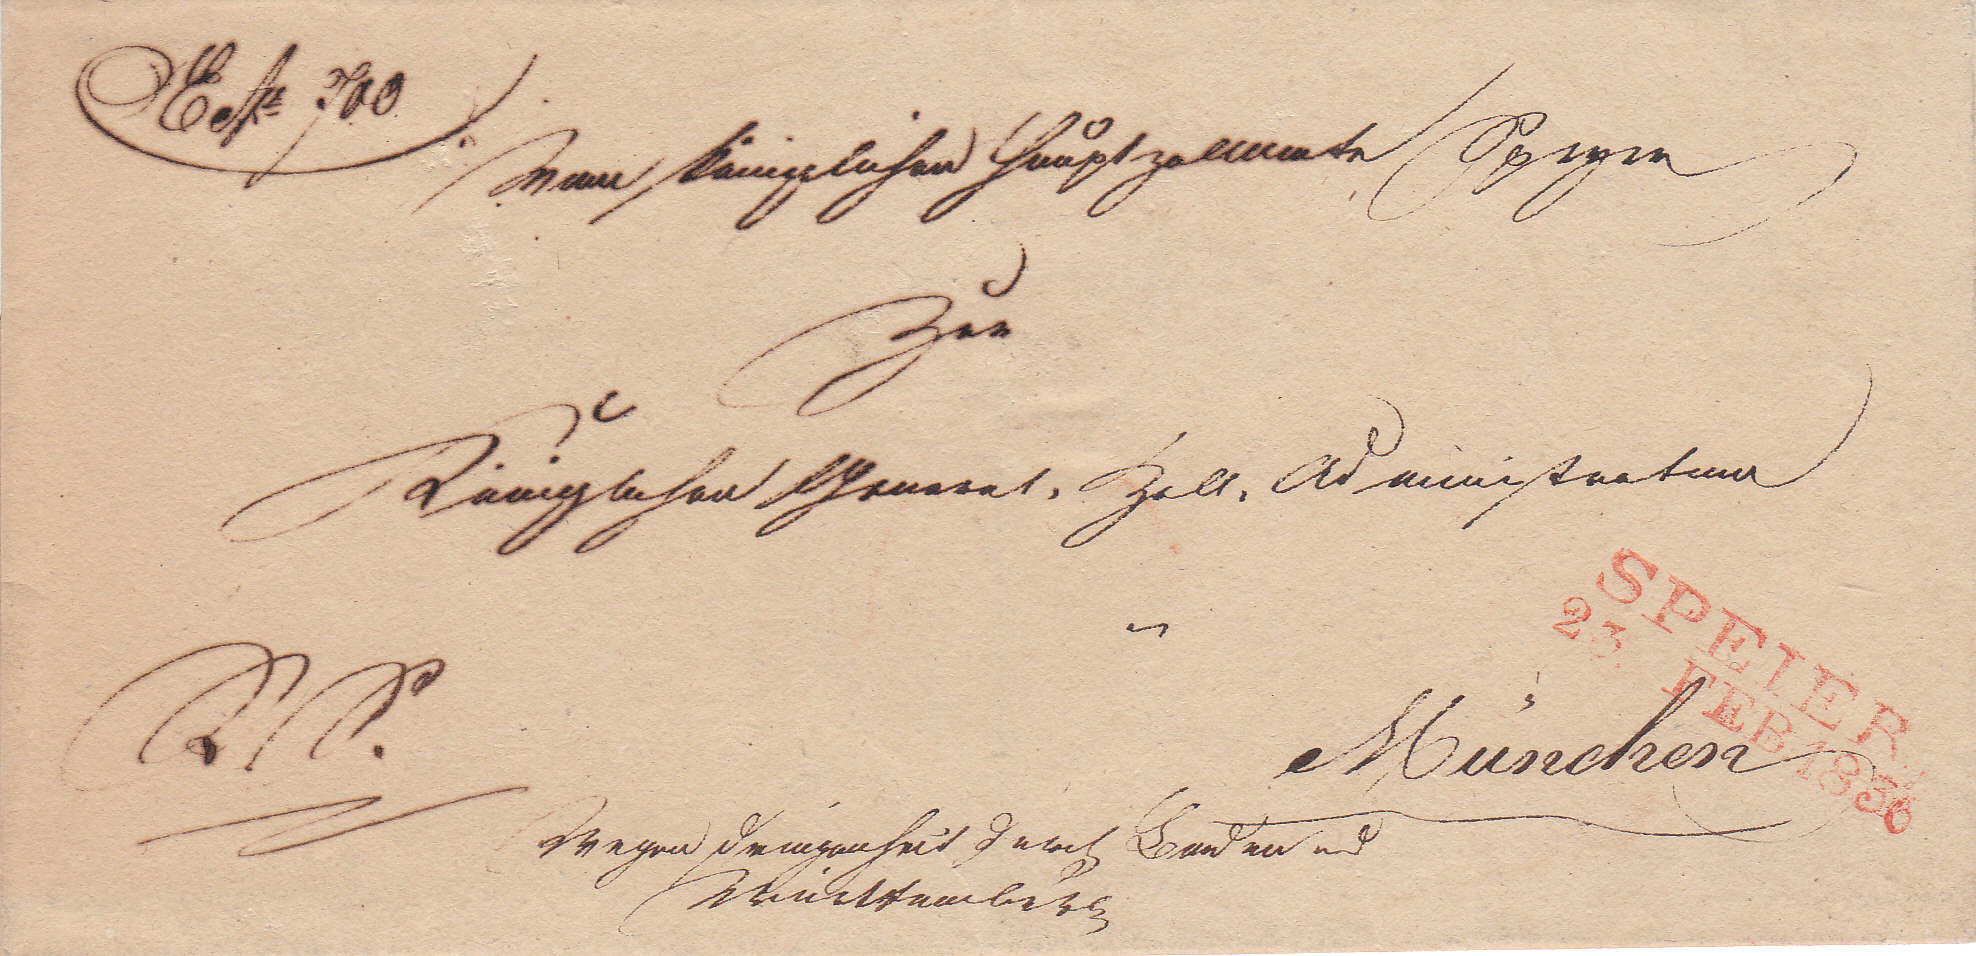 E. No 700
Vom königlichen Hauptzollamte Speyer
Zur
Königlichen General-Zoll-Administration
in
SPEIER
23 FEB 1836
R. S.
München
Wegen Dringenheit durch Baden und
Württemberg